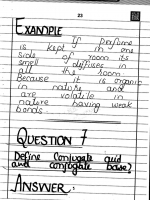 23
EXAMPLE
If perfume
is kept in one
side of room its
smell diffuses in
all the room
because it is organic
in nature and
are volatile in
nature having weak
bonds.
QUESTION 7
Define Conjugate acid
and conjugate base?
ANSWER: